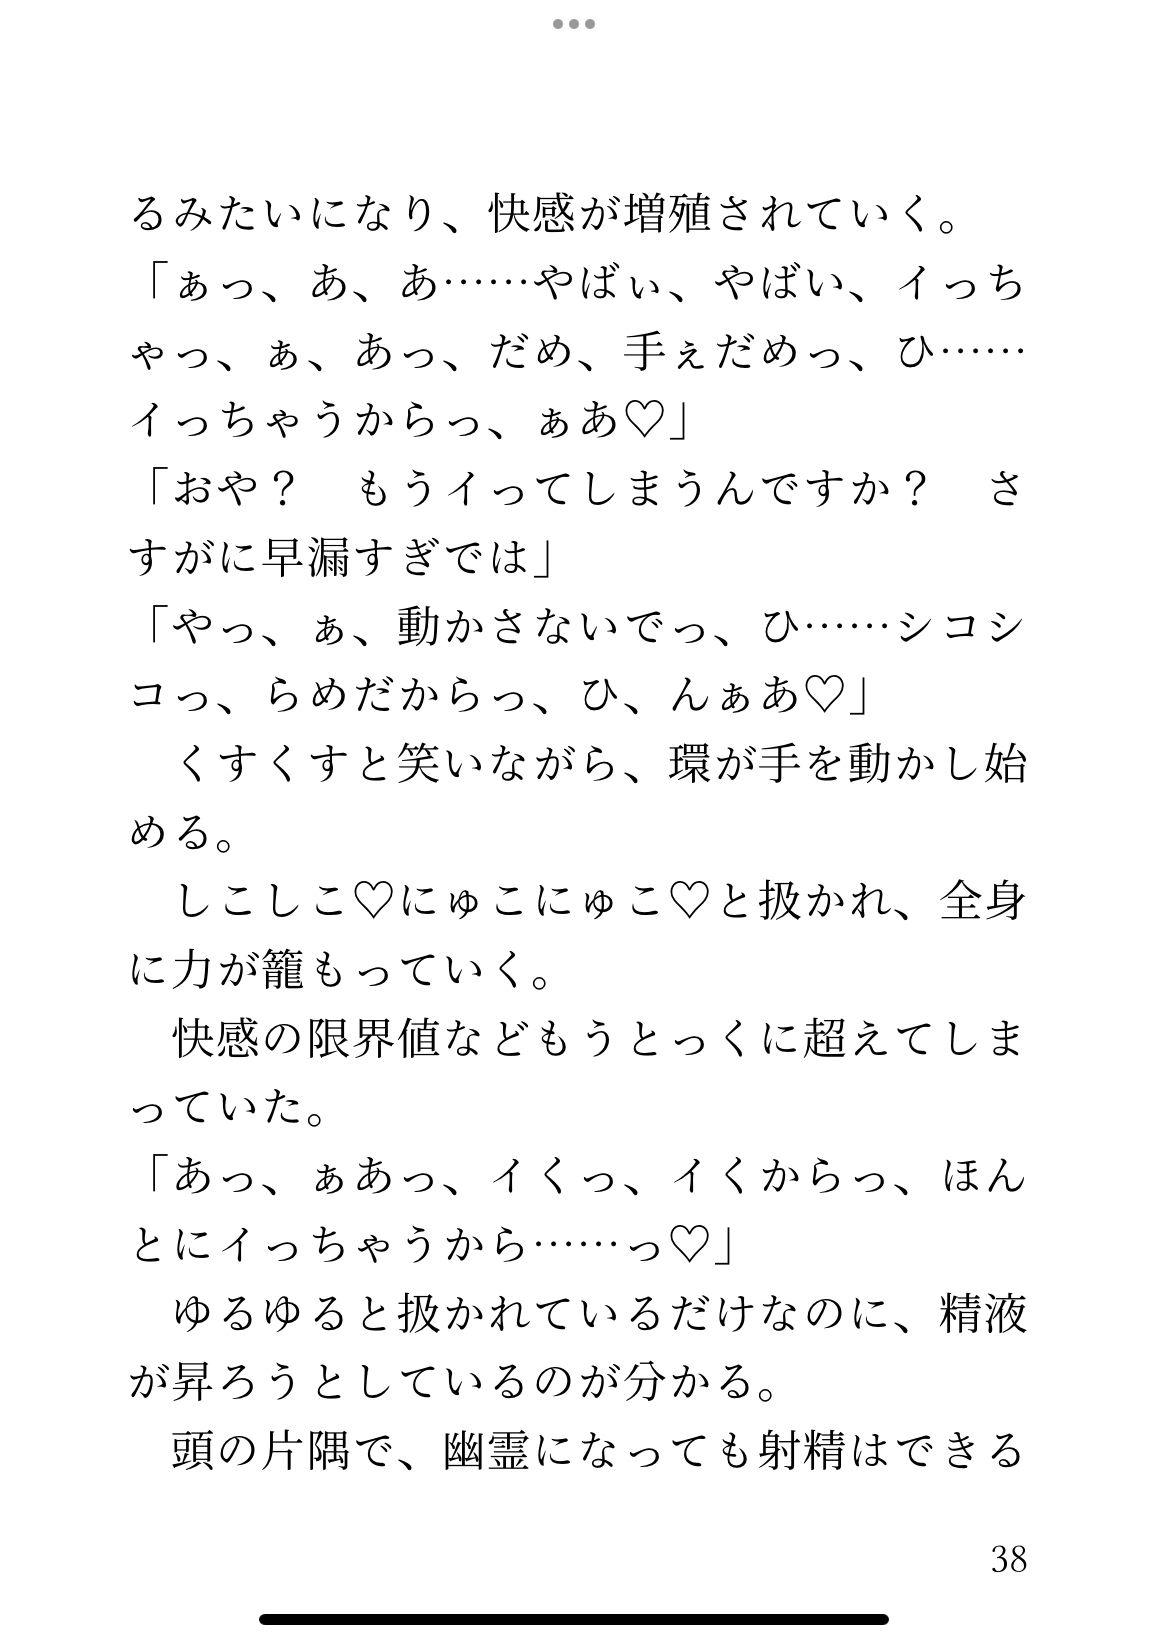 るみたいになり、快感が増殖されていく。
「ぁっ、あ、あ……やばぃ、やばい、イっち
ゃっ、ぁ、あっ、だめ、手ぇだめっ、ひ……
イっちゃうからっ、ぁあ♡」
「おや？　もうイってしまうんですか？　さ
すがに早漏すぎでは」
「やっ、ぁ、動かさないでっ、ひ……シコシ
コっ、らめだからっ、ひ、んぁあ♡」
　くすくすと笑いながら、環が手を動かし始
める。
　しこしこ♡にゅこにゅこ♡と扱かれ、全身
に力が籠もっていく。
　快感の限界値などもうとっくに超えてしま
っていた。
「あっ、ぁあっ、イくっ、イくからっ、ほん
とにイっちゃうから……っ♡」
　ゆるゆると扱かれているだけなのに、精液
が昇ろうとしているのが分かる。
　頭の片隅で、幽霊になっても射精はできる
38